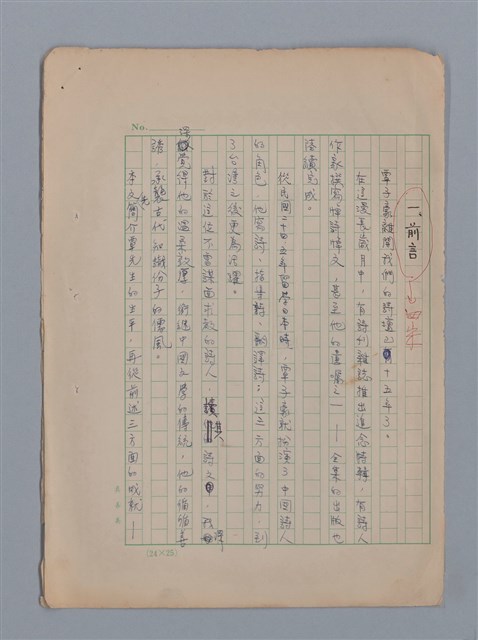 No.
一、前言
覃子豪離開我們的詩壇已有十五年了。
在這漫長歲月中，有詩刊雜誌推出追念特輯，有詩人
作家撰寫悼詩悼文，甚至他的遺囑之一——全集的出版也
陸續完成。
從民國二十五年留學日本時，覃子豪就扮演了中國詩人
的角色，他寫詩、論詩、翻譯詩；這三方面的努力，到
了台灣之後更為活躍。
對於這位不曾謀面求教的詩人，讀其詩文，我
覺得他的溫柔敦厚，銜進中國文學的傳統，他的循循善
誘，承襲古代知識份子的儒風。
本文先簡介覃先生的生平，再從前述三方面的成就——
(24×25)